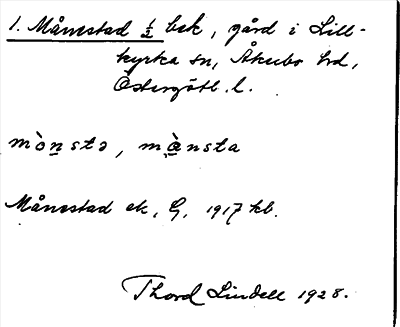 1. Månestad ½ bek, gård i Lill-
kyrka sn, Åkerbo hd,
Östergötl. l.
mò̱nstə, mà̱nsta
Månestad ek, G, 1917 kb.
Thord Lindell 1928.